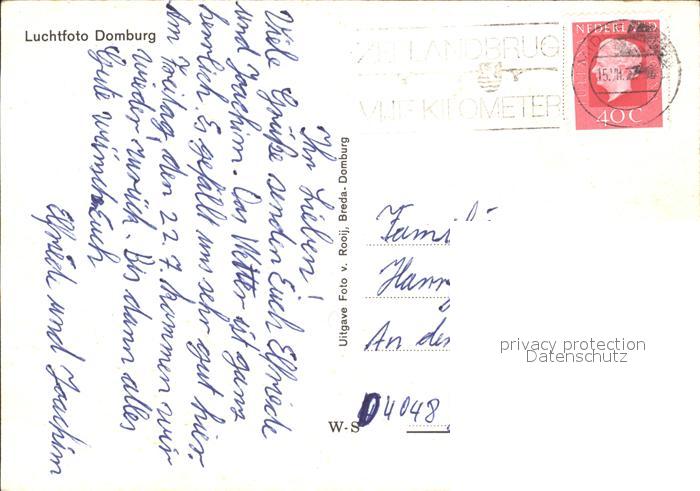 Luchtfoto Domburg
Ihr Lieben!
Viele Grüße senden Euch Elfriede
und Joachim. Das Wetter ist ganz
herrlich. Es gefällt uns sehr gut hier.
Am Freitag, den 22.7. kommen wir
wieder zurück. Bis dann alles
Gute wünscht Euch
Elfriede und Joachim
Uitgave Foto v. Rooij, Breda - Domburg
ZEELANDBRUG
VIJF KILOMETER
NEDERLAND
15.VII.
40 C
Fami
Hann
An de
D4048
W-S
privacy protection
Datenschutz